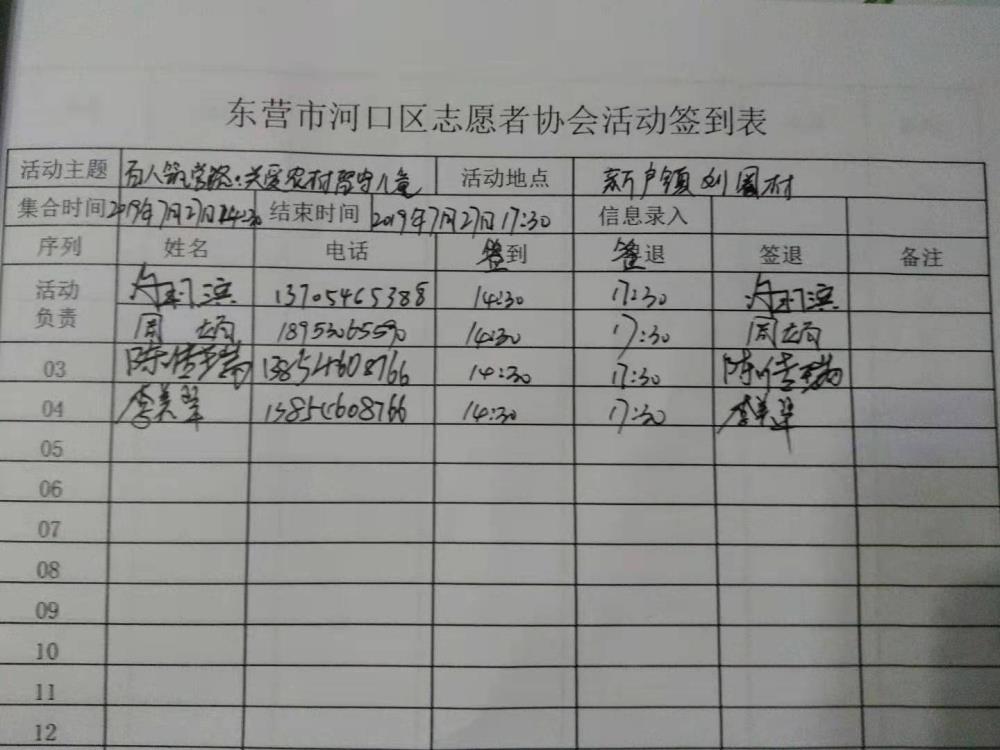 东营市河口区志愿者协会活动签到表
活动主题 百人筑学路:关爱农村留守儿童 活动地点 新户镇刘围村
集合时间 2019年7月27日14:30 结束时间 2019年7月27日17:30 信息录入
序列 姓名 电话 签到 签退 签退 备注
活动负责 13705465388 14:30 17:30
周 18953065590 14:30 17:30 周
03 陈 13854608766 14:30 17:30 陈
04 李美翠 13854608766 14:30 17:30 李美翠
05
06
07
08
09
10
11
12